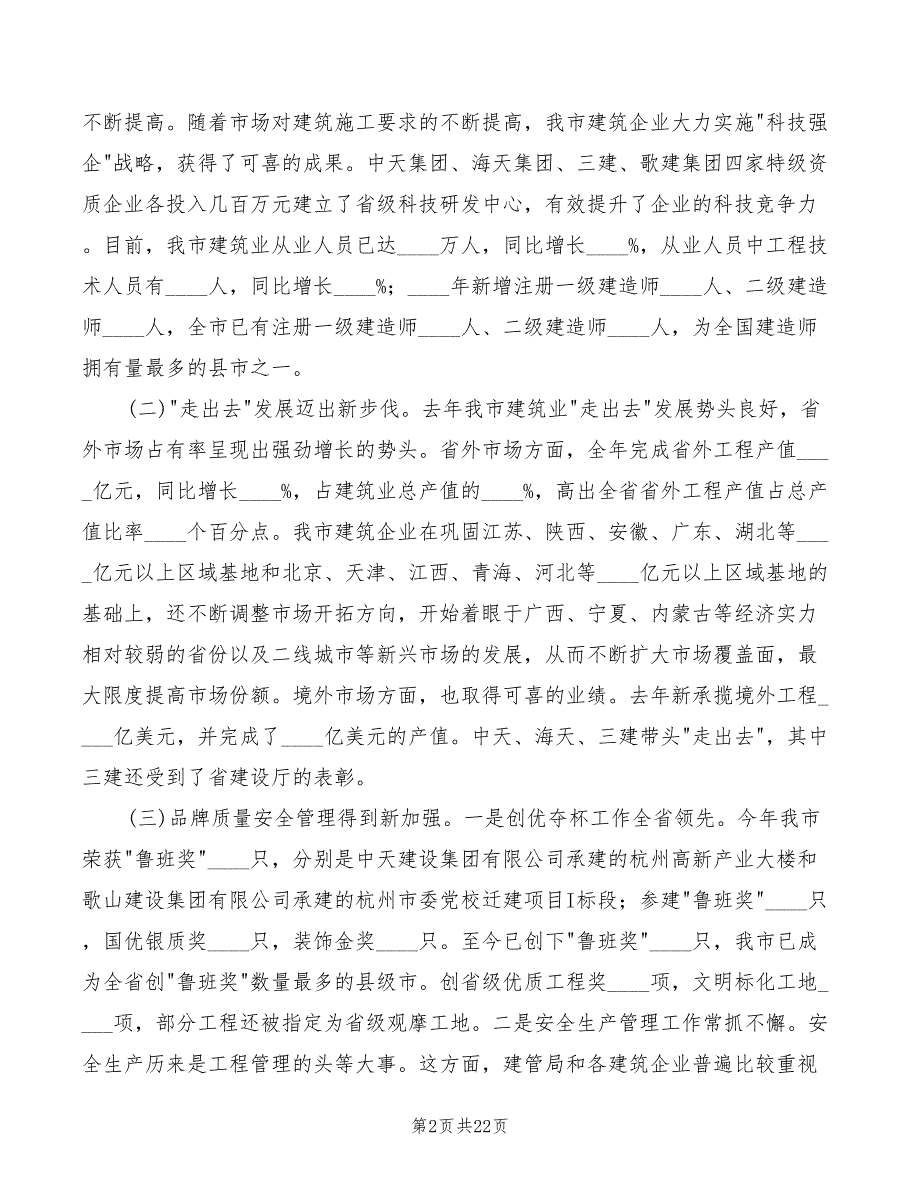 不断提高。随着市场对建筑施工要求的不断提高，我市建筑企业大力实施"科技强
企"战略，获得了可喜的成果。中天集团、海天集团、三建、歌建集团四家特级资
质企业各投入几百万元建立了省级科技研发中心，有效提升了企业的科技竞争力
。目前，我市建筑业从业人员已达____万人，同比增长____%，从业人员中工程技
术人员有____人，同比增长____%；____年新增注册一级建造师____人、二级建造
师____人，全市已有注册一级建造师____人、二级建造师____人，为全国建造师
拥有量最多的县市之一。
(二)"走出去"发展迈出新步伐。去年我市建筑业"走出去"发展势头良好，省
外市场占有率呈现出强劲增长的势头。省外市场方面，全年完成省外工程产值___
_亿元，同比增长____%，占建筑业总产值的____%，高出全省省外工程产值占总产
值比率____个百分点。我市建筑企业在巩固江苏、陕西、安徽、广东、湖北等___
_亿元以上区域基地和北京、天津、江西、青海、河北等____亿元以上区域基地的
基础上，还不断调整市场开拓方向，开始着眼于广西、宁夏、内蒙古等经济实力
相对较弱的省份以及二线城市等新兴市场的发展，从而不断扩大市场覆盖面，最
大限度提高市场份额。境外市场方面，也取得可喜的业绩。去年新承揽境外工程_
___亿美元，并完成了____亿美元的产值。中天、海天、三建带头"走出去"，其中
三建还受到了省建设厅的表彰。
(三)品牌质量安全管理得到新加强。一是创优夺杯工作全省领先。今年我市
荣获"鲁班奖"____只，分别是中天建设集团有限公司承建的杭州高新产业大楼和
歌山建设集团有限公司承建的杭州市委党校迁建项目I标段；参建"鲁班奖"____只
，国优银质奖____只，装饰金奖____只。至今已创下"鲁班奖"____只，我市已成
为全省创"鲁班奖"数量最多的县级市。创省级优质工程奖____项，文明标化工地_
___项，部分工程还被指定为省级观摩工地。二是安全生产管理工作常抓不懈。安
全生产历来是工程管理的头等大事。这方面，建管局和各建筑企业普遍比较重视
第2页共22页